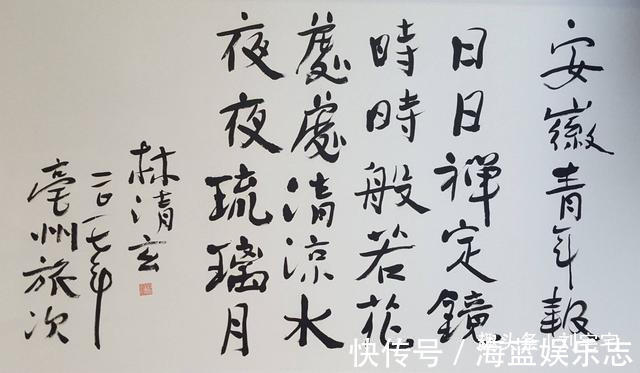 安徽青年報
日日禪定鏡
時時般若花
處處清涼水
夜夜琉璃月
林清玄
二〇一七年
亳州旅次
快传号/海蓝娱乐志